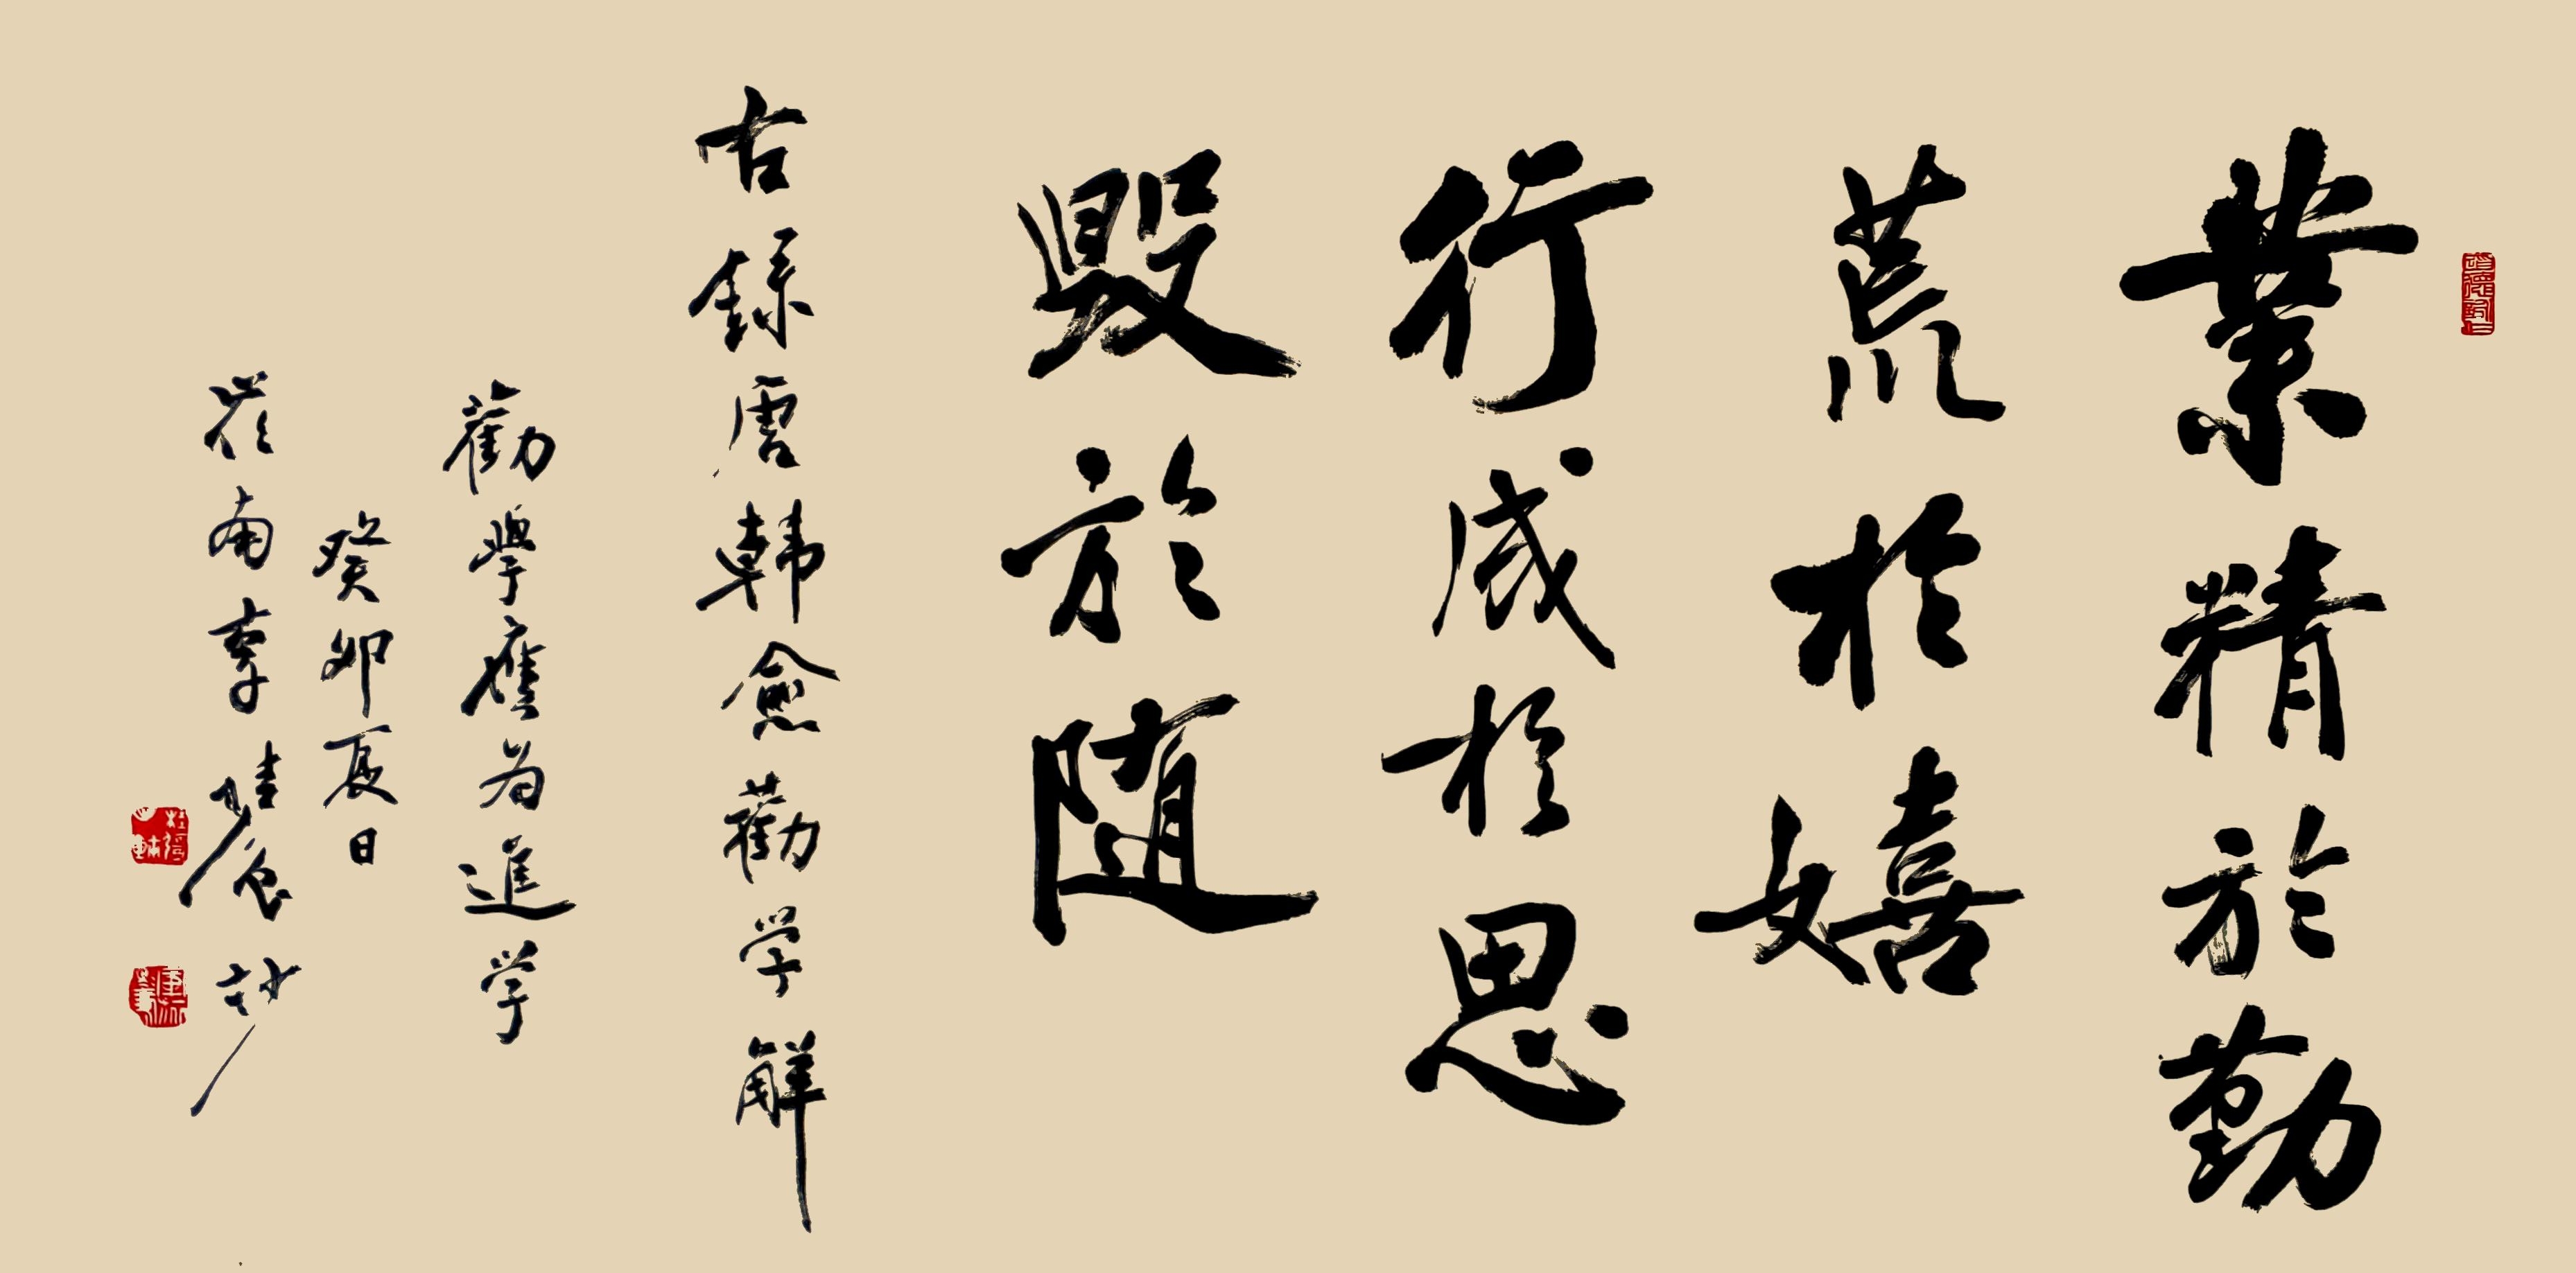 業精於勤
荒於嬉
行成於思
毀於随
右録唐韩愈勸学解
勸學應为進学
癸卯夏日
岭南李
抄